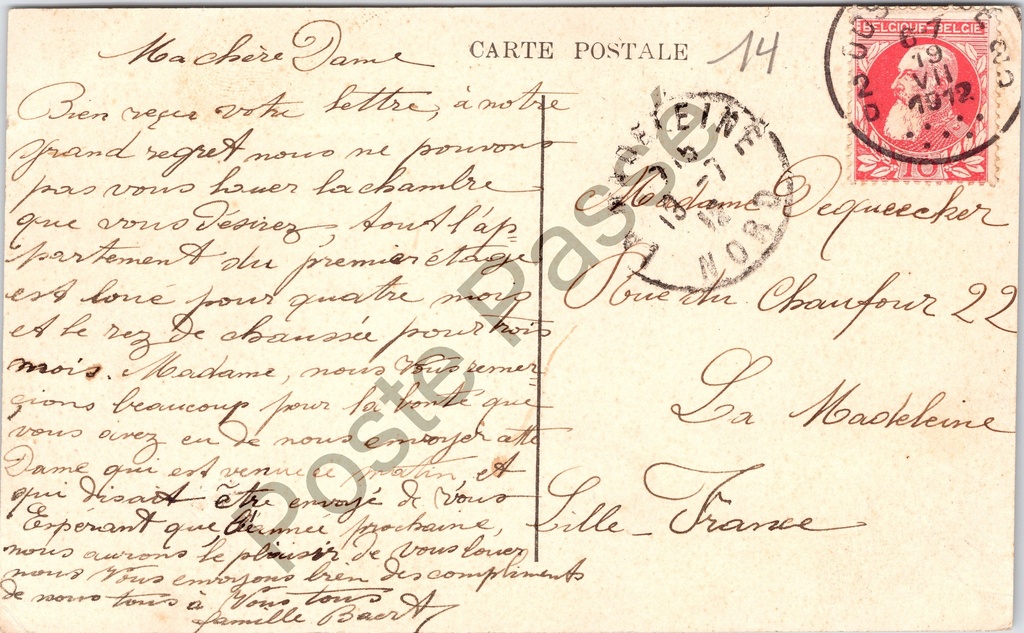 CARTE POSTALE
14
BELGIQUE-BELGIE
6-7
19
VII
1912
10
LA MADELEINE
NORD
Ma chère Dame
Bien reçu votre lettre, à notre
grand regret nous ne pouvons
pas vous louer la chambre
que vous désirez, tout l'ap=
partement du premier étage
est loué pour quatre mois
et le rez de chaussée pour trois
mois. Madame, nous vous remer
çions beaucoup pour la bonté que
vous avez eu de nous envoyer cette
Dame qui est venue ce matin, et
qui disait être envoyé de vous
Espérant que l'année prochaine,
nous aurons le plaisir de vous louer
nous vous envoyons bien des compliments
de nous tous à vous tous
famille Baert
Madame Dequeecker
Rue du Chaufour 22
La Madeleine
Lille - France
Poste Passé